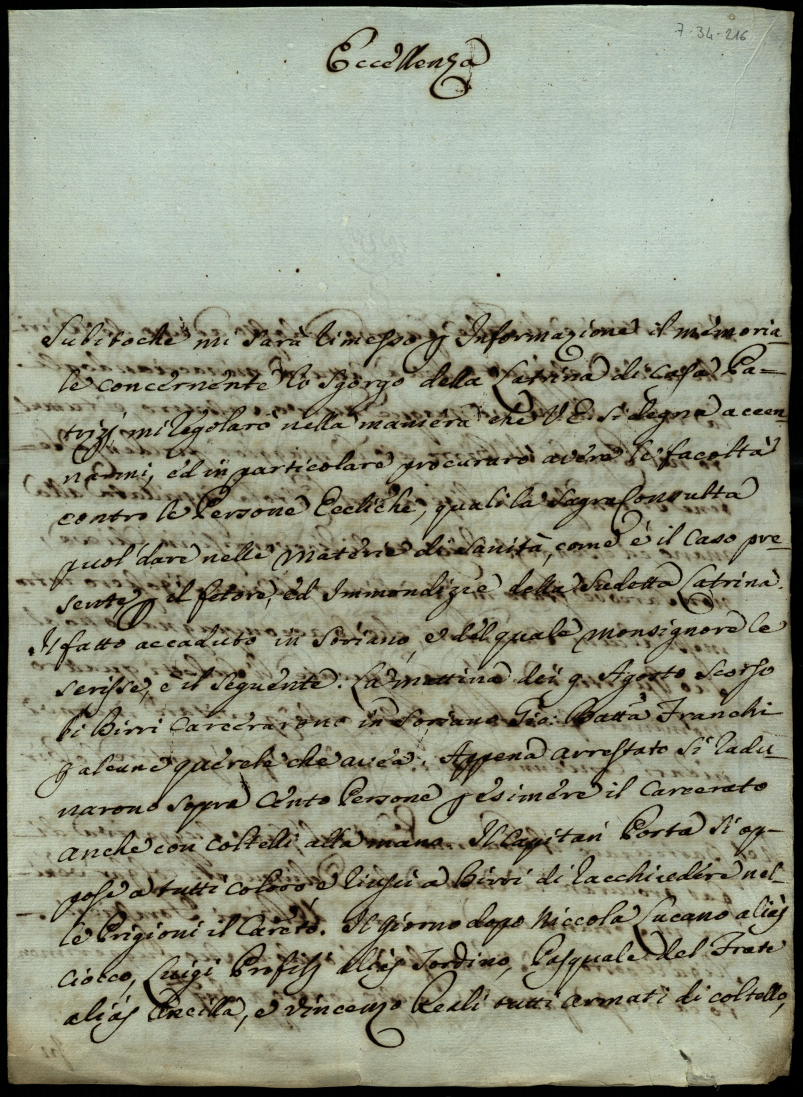 7-34-216
Eccellenza
Subitoche mi sarà rimesso p Informazione il memoria
le concernente lo sgorgo della Latrina di Casa Pa=
trizj, mi regolarò nella maniera che V E. si degna accen
narmi, ed in particolare procurarò avere le facoltà
contro le Persone Eccliche, quali la Sagra Consulta
suol dare nelle Materie di Sanità, come è il Caso pre=
sente p il fetore, ed Immondizie della sudetta Latrina.
Il fatto accaduto in Soriano, e del quale Monsignore le
scrisse, è il seguente. La mattina dei 9. Agosto scorso
li Birri carcerarono in Soriano Gio: Batta Franchi
p alcune querele che avea. Appena arrestato si radu=
narono sopra Cento Persone p esimere il Carcerato
anche con coltelli alla mano. Il Capitan Porta si op=
pose a tutti coloro e riuscì a Birri di racchiudere nel=
le Prigioni il Carcto. Il giorno dopo Niccola Lucano aliàs
Ciocco, Luigi Profilj aliàs Tordino, Pasquale del Frate
aliàs Ancilla, e Vincenzo Reali tutti armati di coltello,